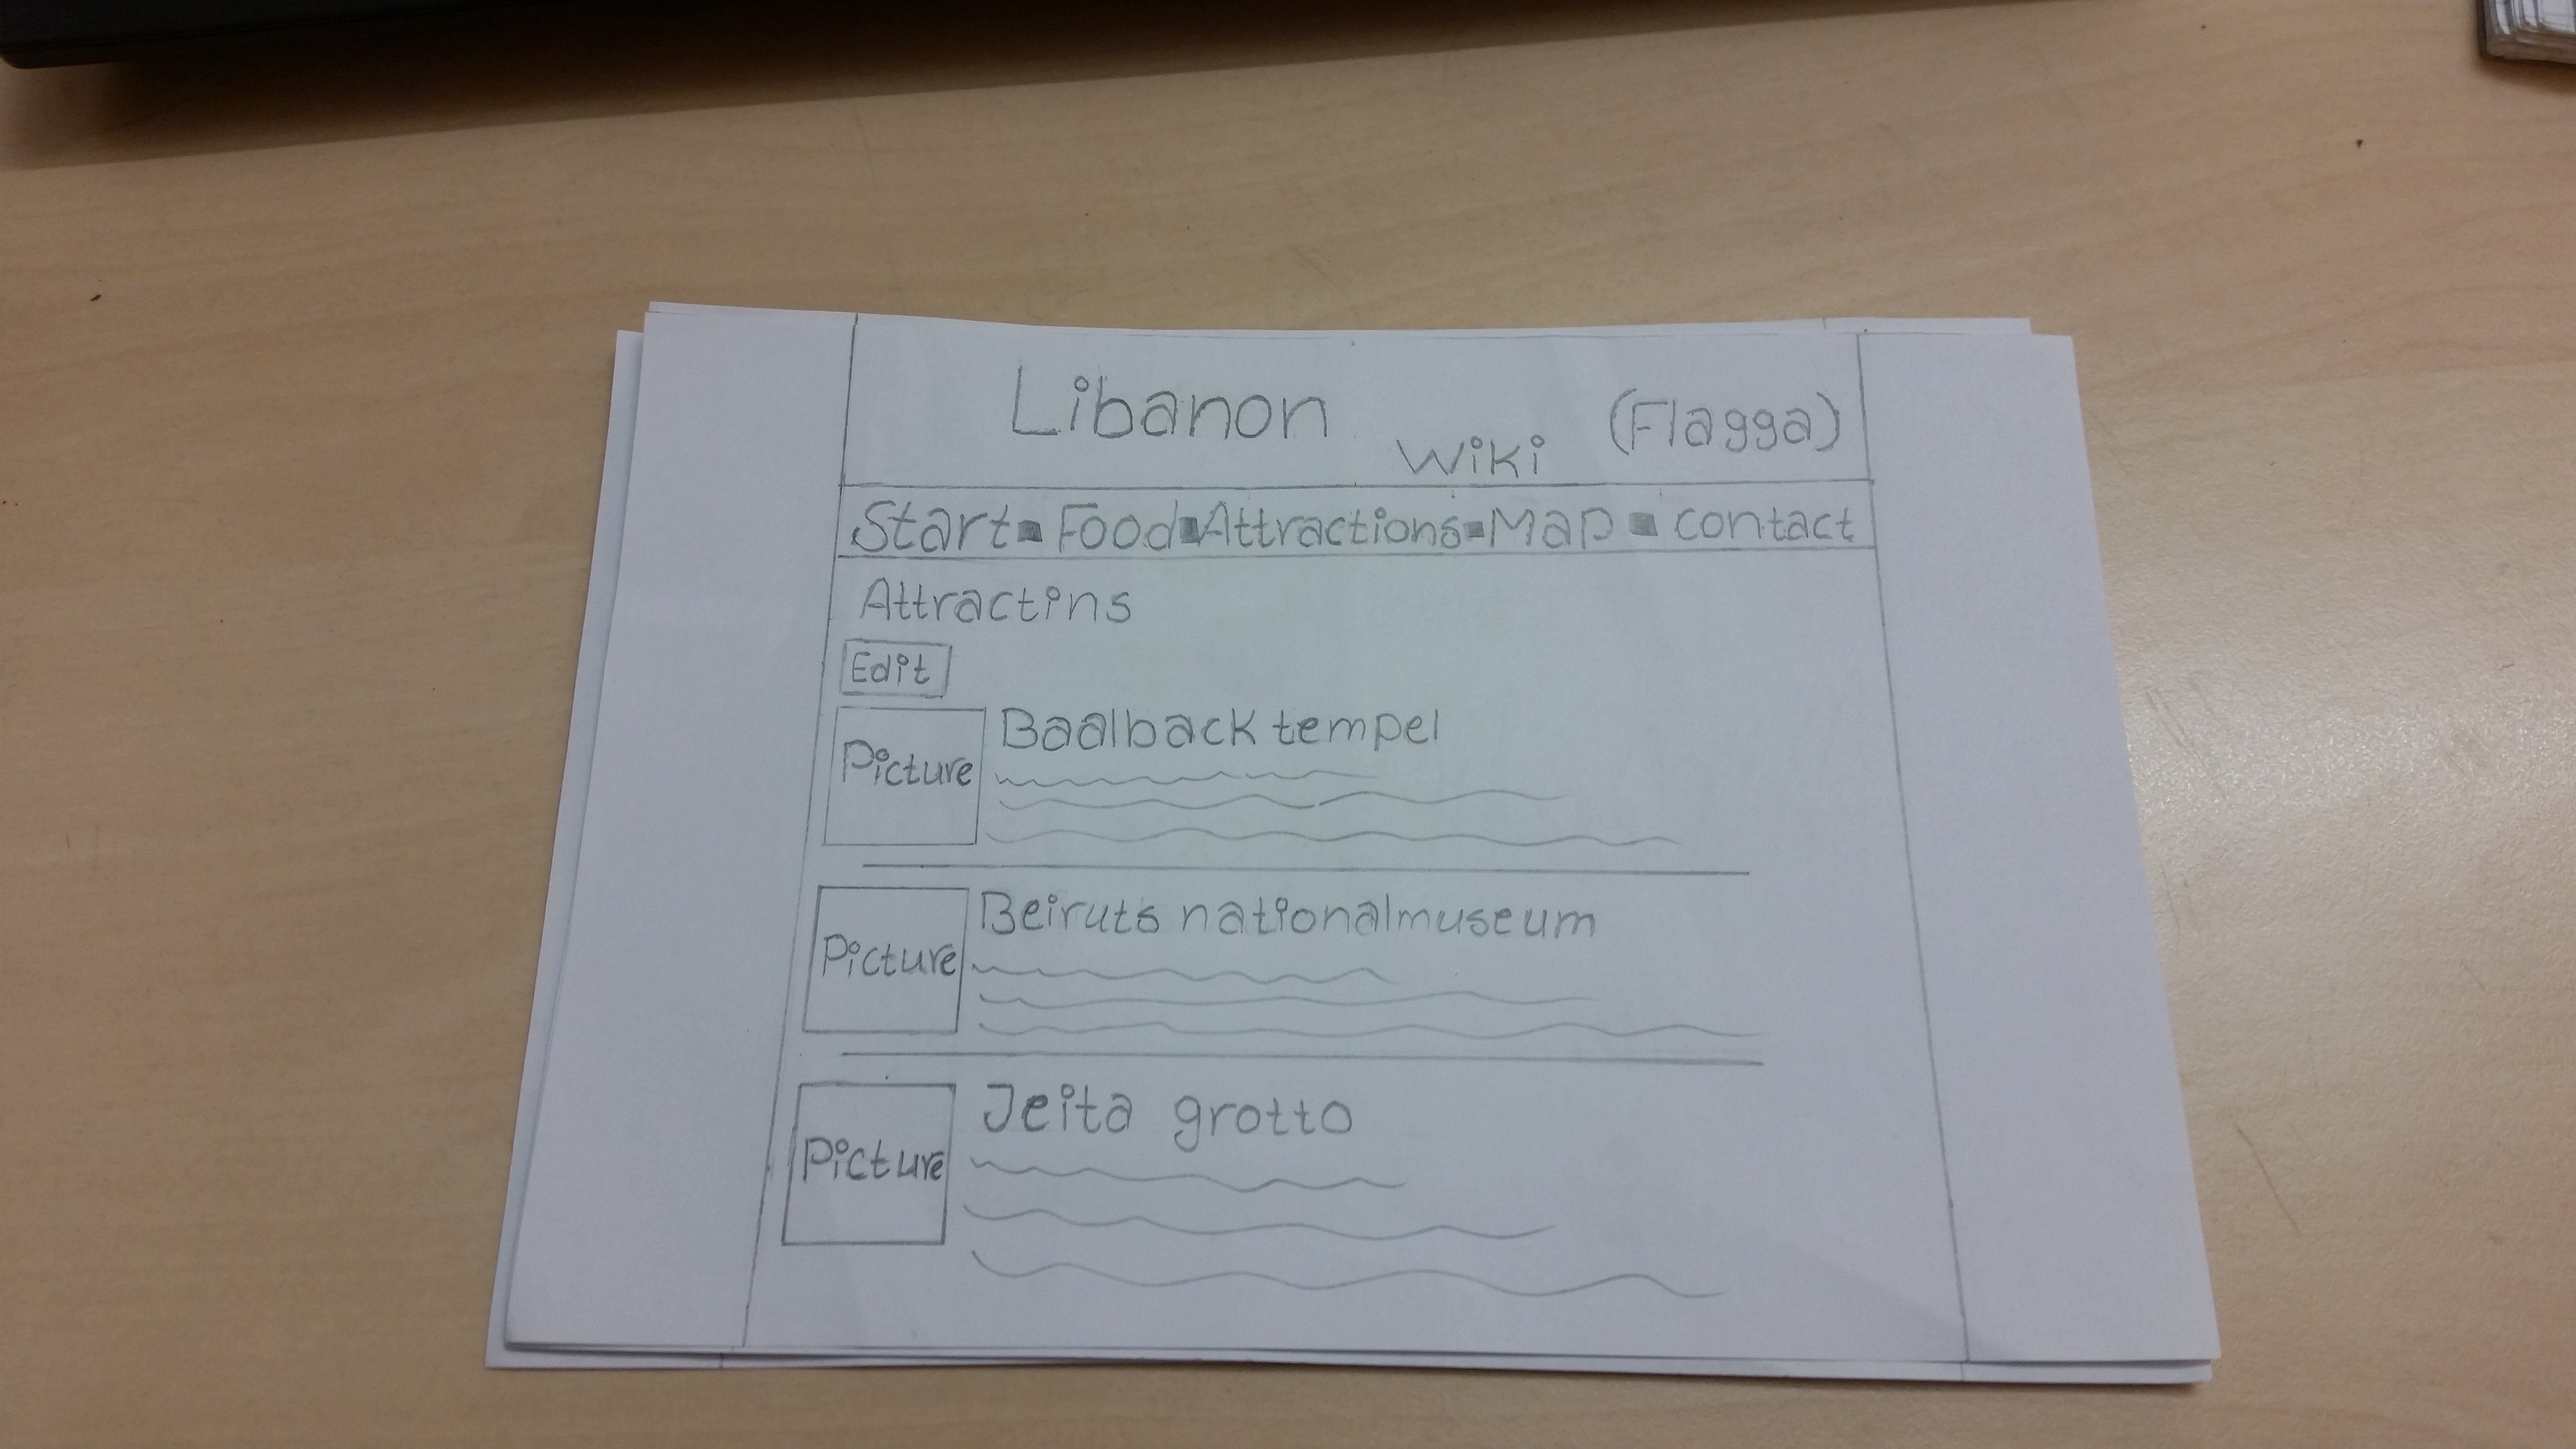 Libanon wiki (Flagga)
Start - Food - Attractions - Map - contact
Attractins
Edit
Picture
Baalback tempel
Picture
Beiruts nationalmuseum
Picture
Jeita grotto